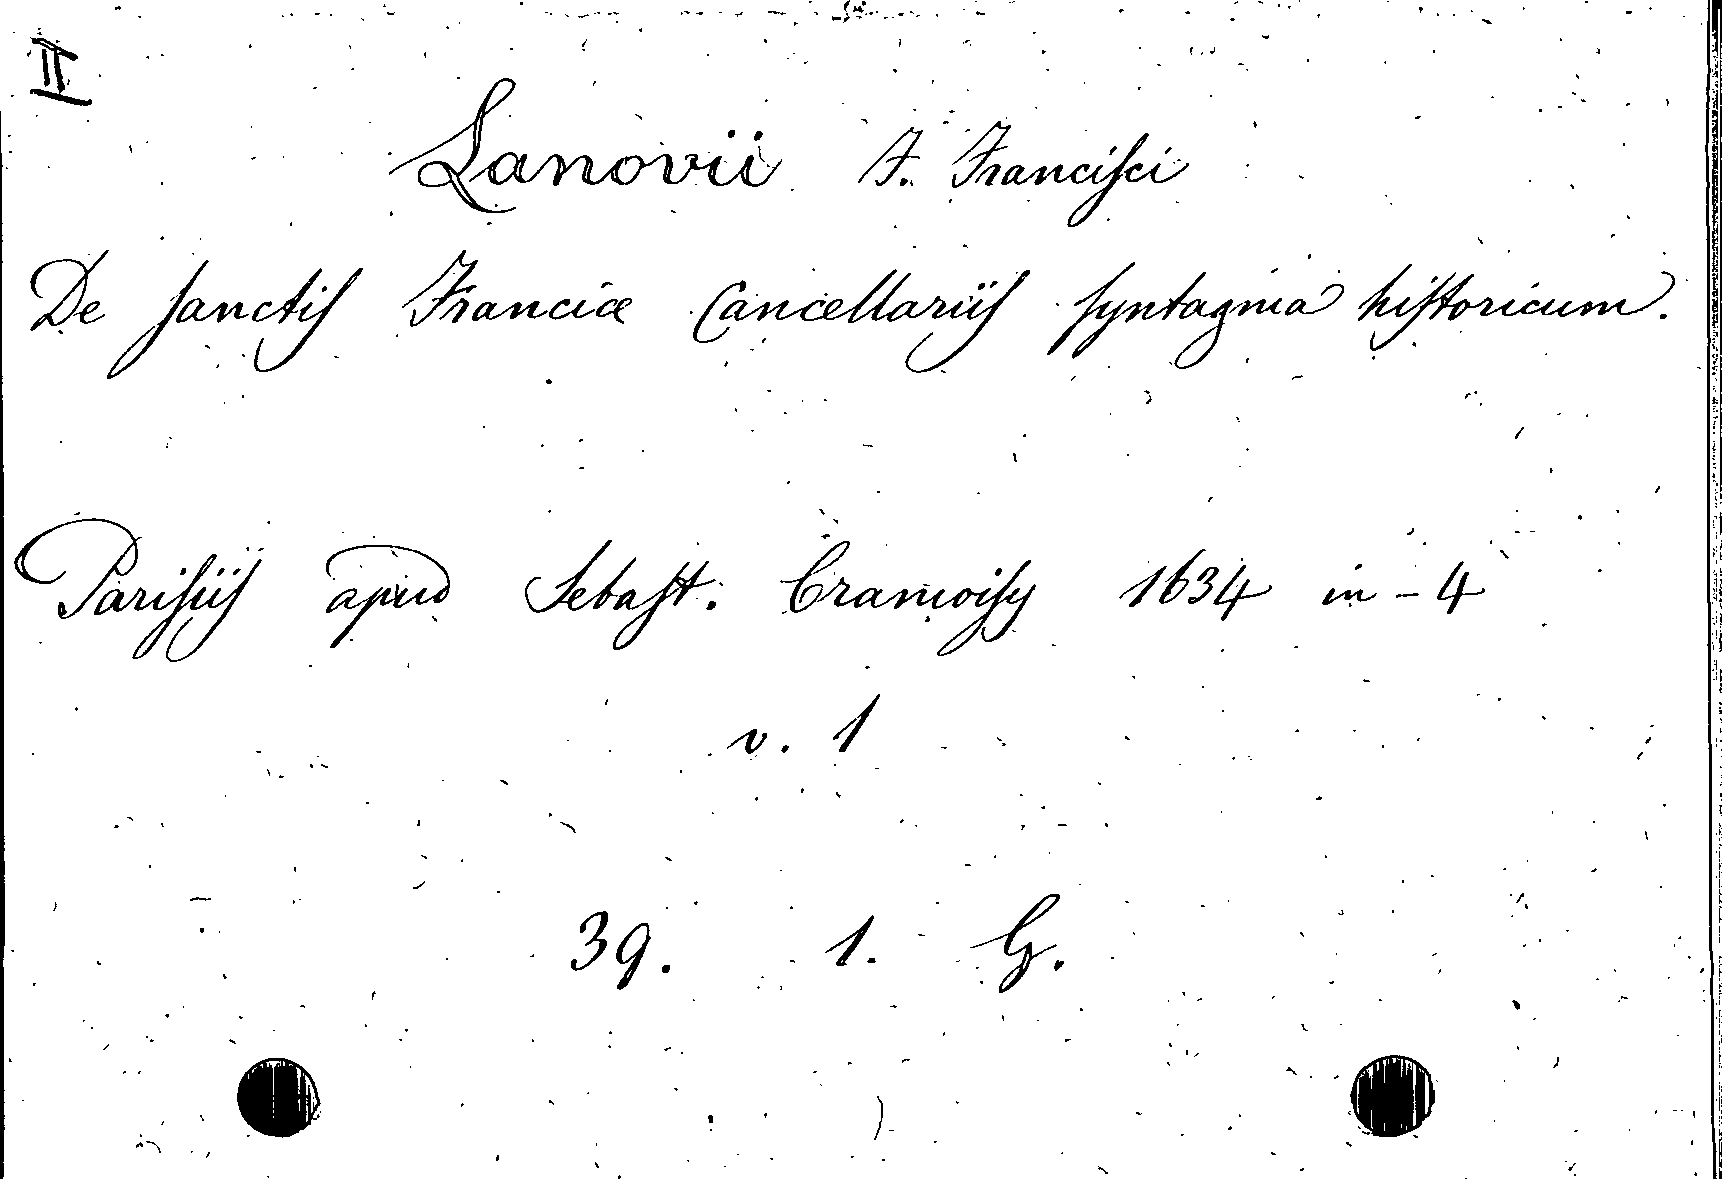 II
Lanovii F. Francisci
De sanctis Franciæ Cancellariis syntagma historicum.
Parisiis apud Sebast. Cramoisy 1634 in-4
v. 1
39. 1. G.